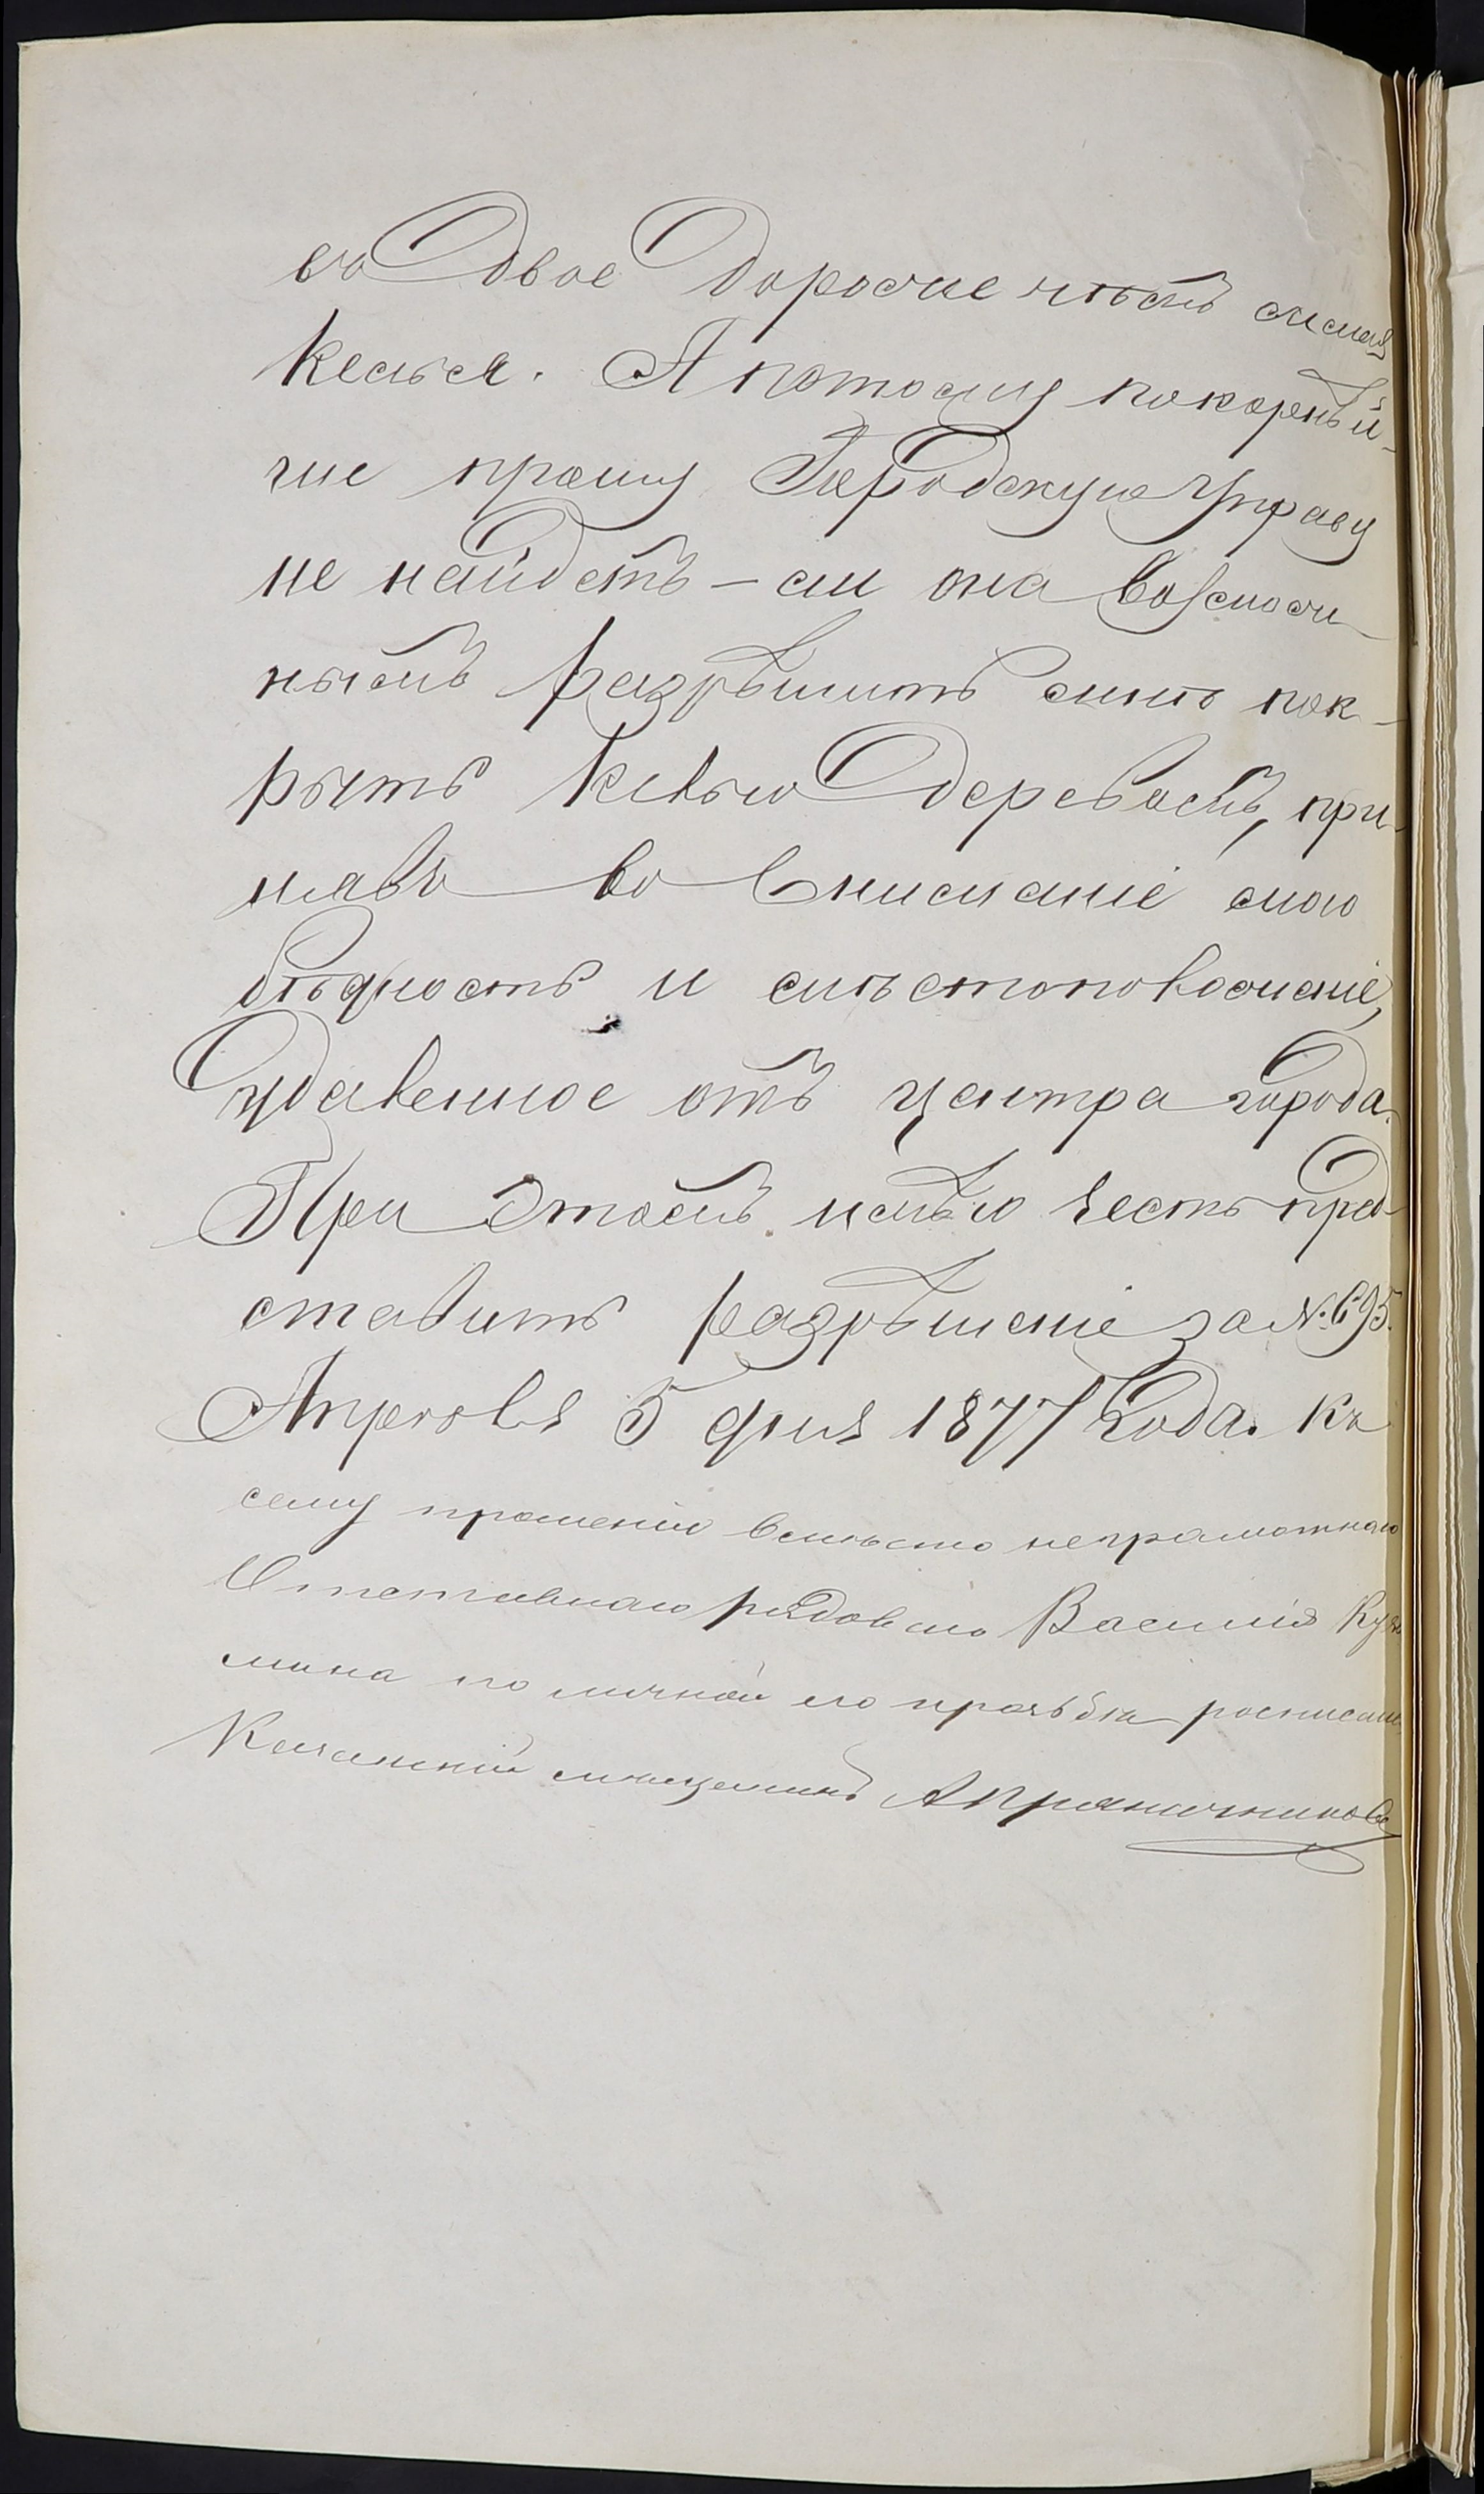 во двое дороже чѣмъ моя
келья. А потому покорнѣй-
ше прошу Городскую Управу
не найдетъ-ли она возмож
нымъ разрѣшить мнѣ пок-
рыть келью деревомъ, при-
нявъ во вниманіе мою
бѣдность и мѣстоположеніе,
удаленное отъ центра города.
При этомъ имѣю честь пред
ставить разрѣшеніе за №. 695.
Апрѣля 5 дня 1877 года. Къ
сему прошенію вмѣсто неграмотнаго
Отставнаго рядоваго Василія Кузь
мина по личной его прозьбѣ росписался
Казанскій мѣщанинъ А Пряничниковъ